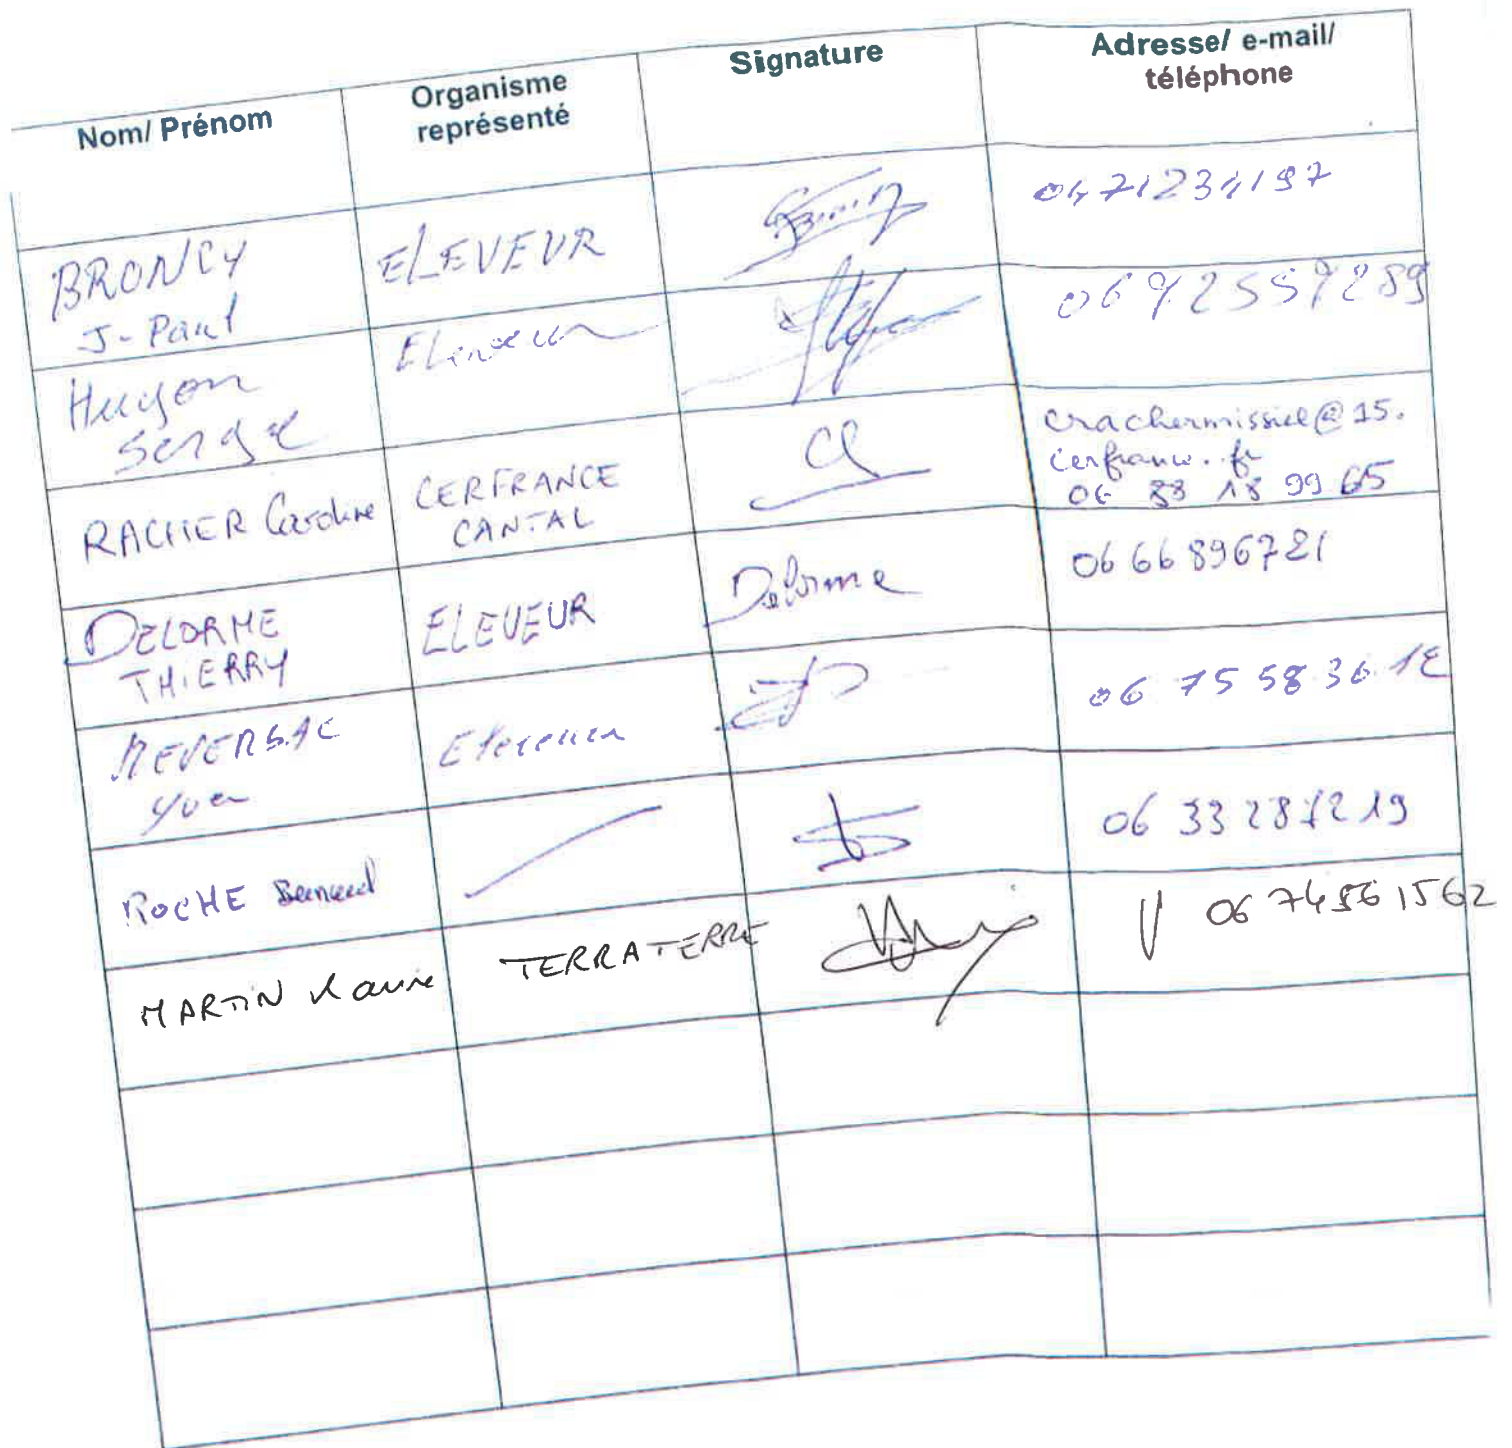 Nom/ Prénom
Organisme
représenté
Signature
Adresse/ e-mail/
téléphone
BRONCY
J-Paul
ELEVEUR
0471234197
Hugon
Serge
Eleveur
RACHER Caroline
CERFRANCE
CANTAL
crachermissiel@15.
cerfrance.fr
06 88 18 99 65
DELORME
THIERRY
ELEVEUR
Delorme
0666896721
MEVERSAC
Yves
Eleveur
06 75 58 36 12
ROCHE Bernard
06 33 28 72 19
MARTIN Laurie
TERRATERRE